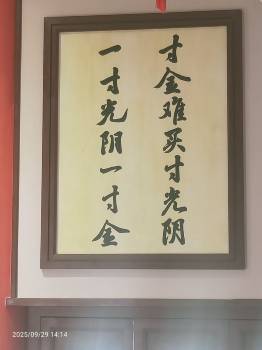 一寸光阴一寸金
寸金难买寸光阴
2025/09/29 14:14